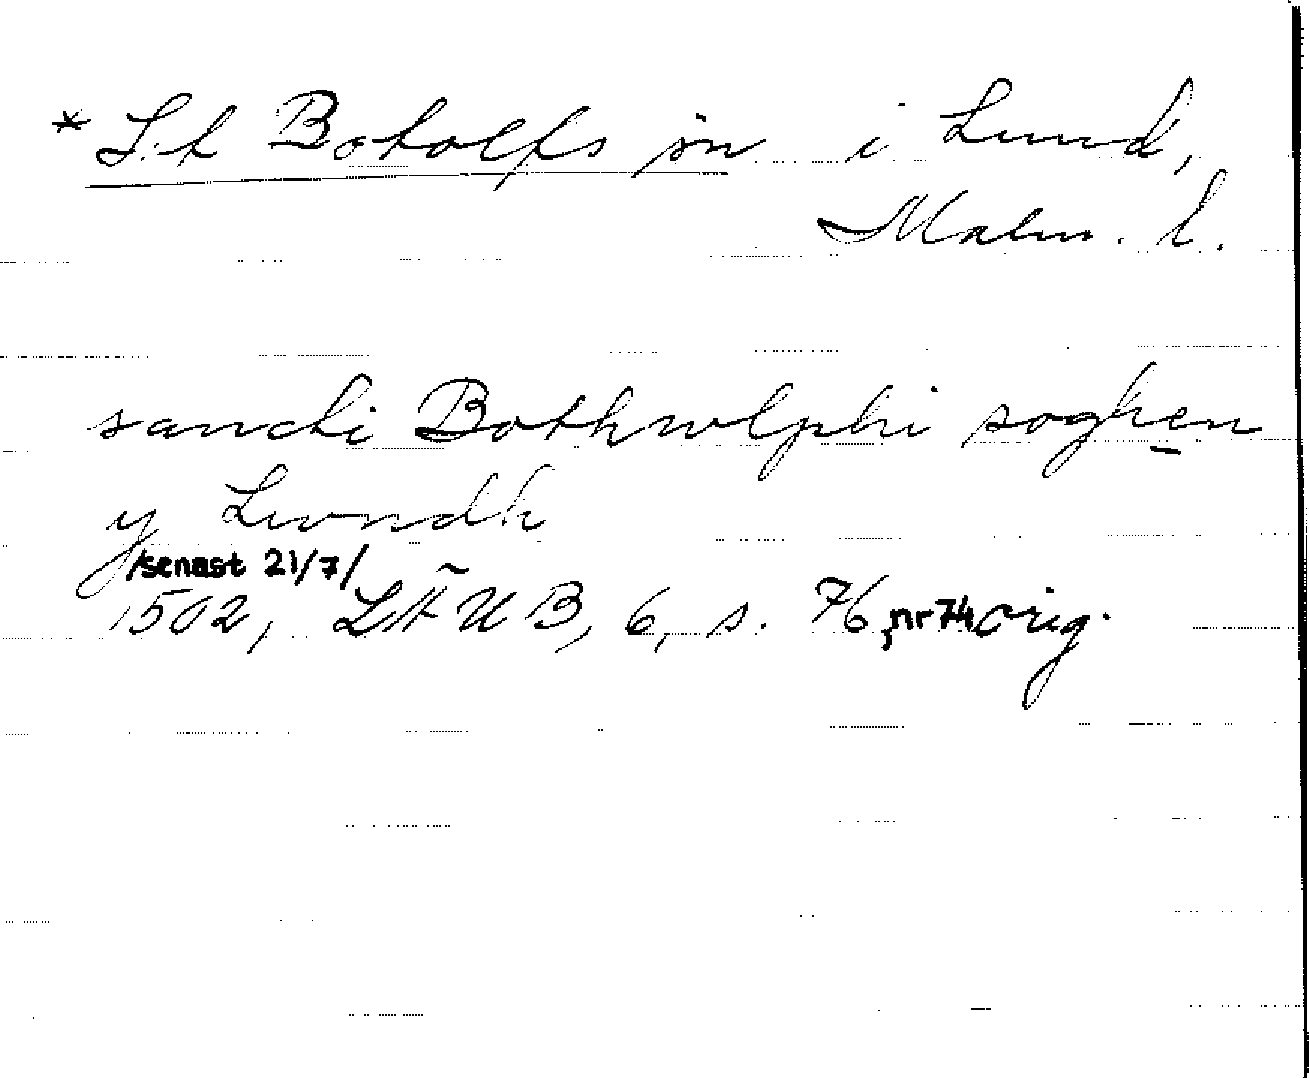 * S:t Botolfs sn i Lund,
Malm. l.
sancti Bothwlphi soghen
y Lwndh
/senast 21/7/
1502, LÄUB, 6, s. 76, nr 74 orig.